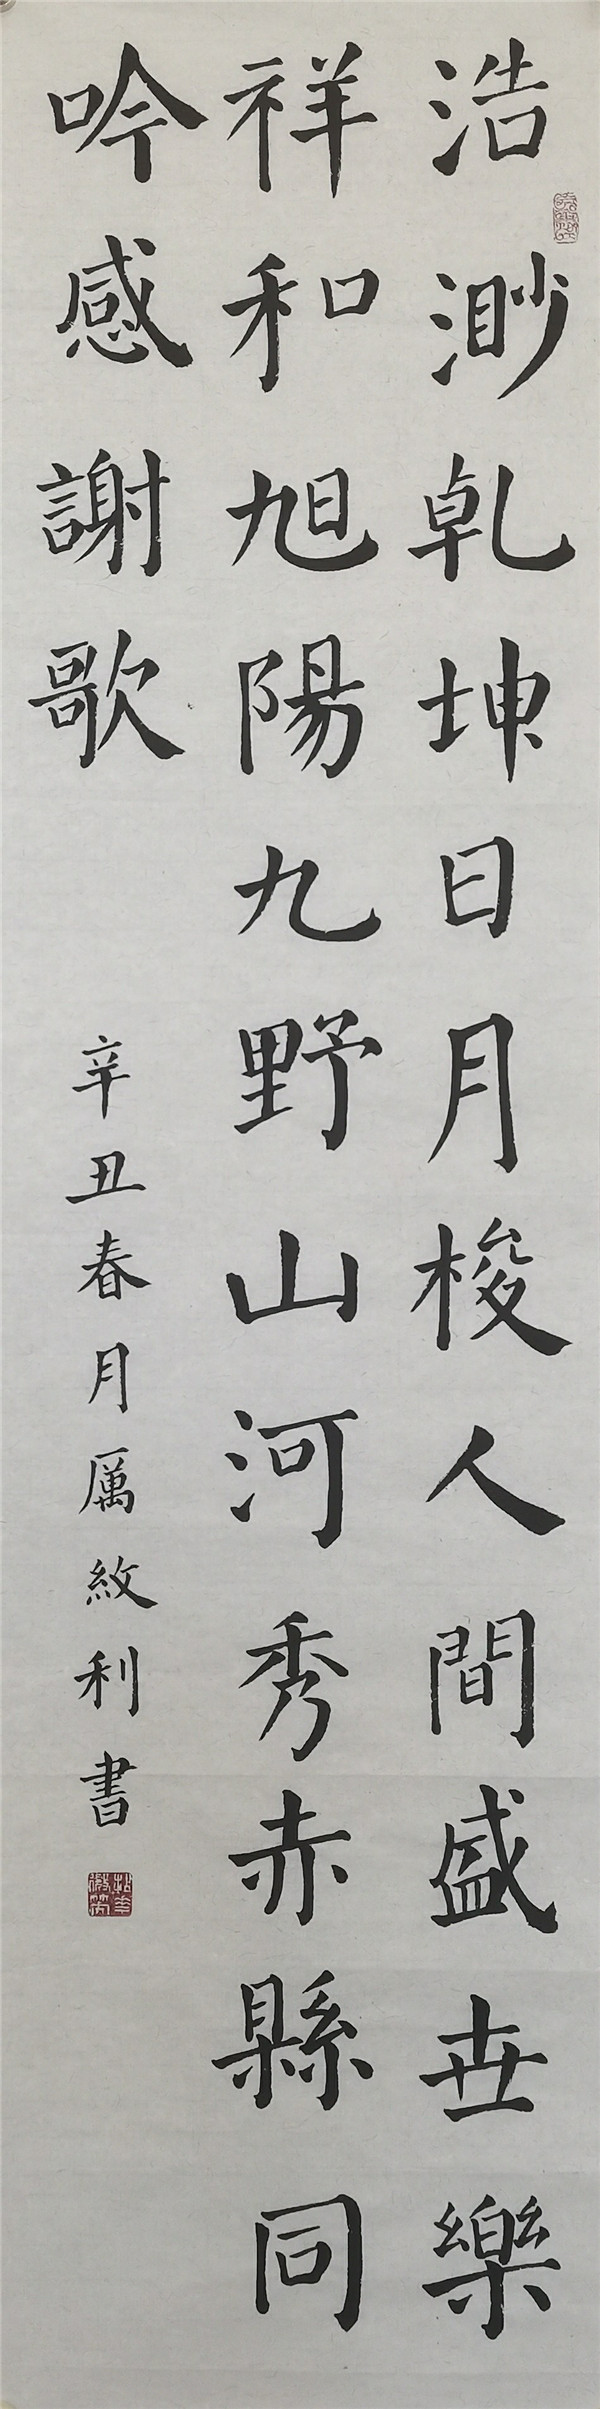 浩渺乾坤日月梭人間盛世樂
祥和旭陽九野山河秀赤縣同
吟感謝歌
辛丑春月厲紋利書